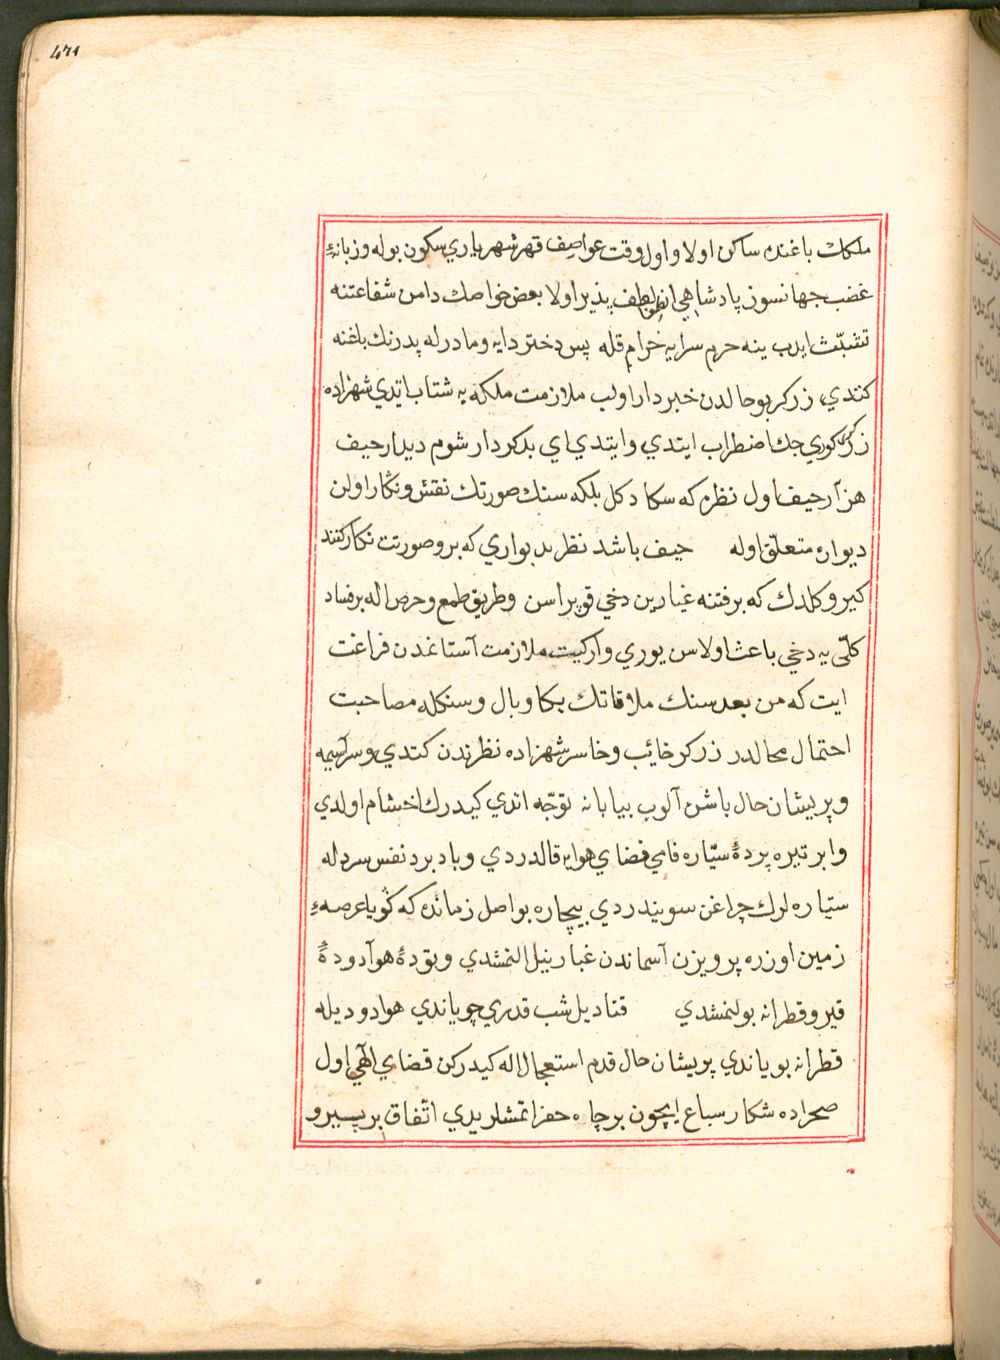 471
ملكك باغنده ساكن اولا و اول وقت عواصف قهر شهرياري سكون بوله و زبانهٔ
غضب جهانسوز پادشاهي انطفا پذير اولا بعض خواصك دامن شفاعتنه
تشبّث ايدب ينه حرم سرايه خرام قله پس دختر دايه و مادرله پدرنك باغنه
كتدي زركر بو حالدن خبردار اولب ملازمت ملكه يه شتاب ايتدي شهزاده
زركر كوري جك اضطراب ايتدي و ايتدي اي بدكردار شوم ديدار حيف
هزار حيف اول نظره كه سكا دكل بلكه سنك صورتك نقش و نكار اولن
ديواره متعلّق اوله حيف باشد نظر بديواري كه برو صورتت نكار كنند
كيرو كلدك كه بر فتنه غبارين دخي قوپراسن و طريق طمع و حرص اله بر فساد
كلّي يه دخي باعث اولاسن يوري وار كيت ملازمت آستانمدن فراغت
ايت كه من بعد سنك ملاقاتك بكا وبال و سنكله مصاحبت
احتمال محالدر زركر خائب و خاسر شهزاده نظرندن كتدي و سراسيمه
و پريشان حال باشن آلوب بيابانه توجّه اتدي كيدرك اخشام اولدي
و ابر تيره پردهٔ سيّاره فامي فضاي هوايه قالدردي و باد برد نفس سردله
ستياره لرك چراغن سويندردي بيچاره بو اصل زمانده كه كويا عرصهٔ
زمين اوزره پرويزن آسماندن غبار نيل النمشدي و تودهٔ هوا دودهٔ
قير و قطرانه بولنمشدي قناديل شب قدري چو ياندي هوا دوديله
قطرانه بوياندي پريشان حال قدم استعجال اله كيدركن قضاي الهي اول
صحراده شكار سباع ايچون بر چاه حفر اتمشلريدي اتّفاق ببر پسيرو